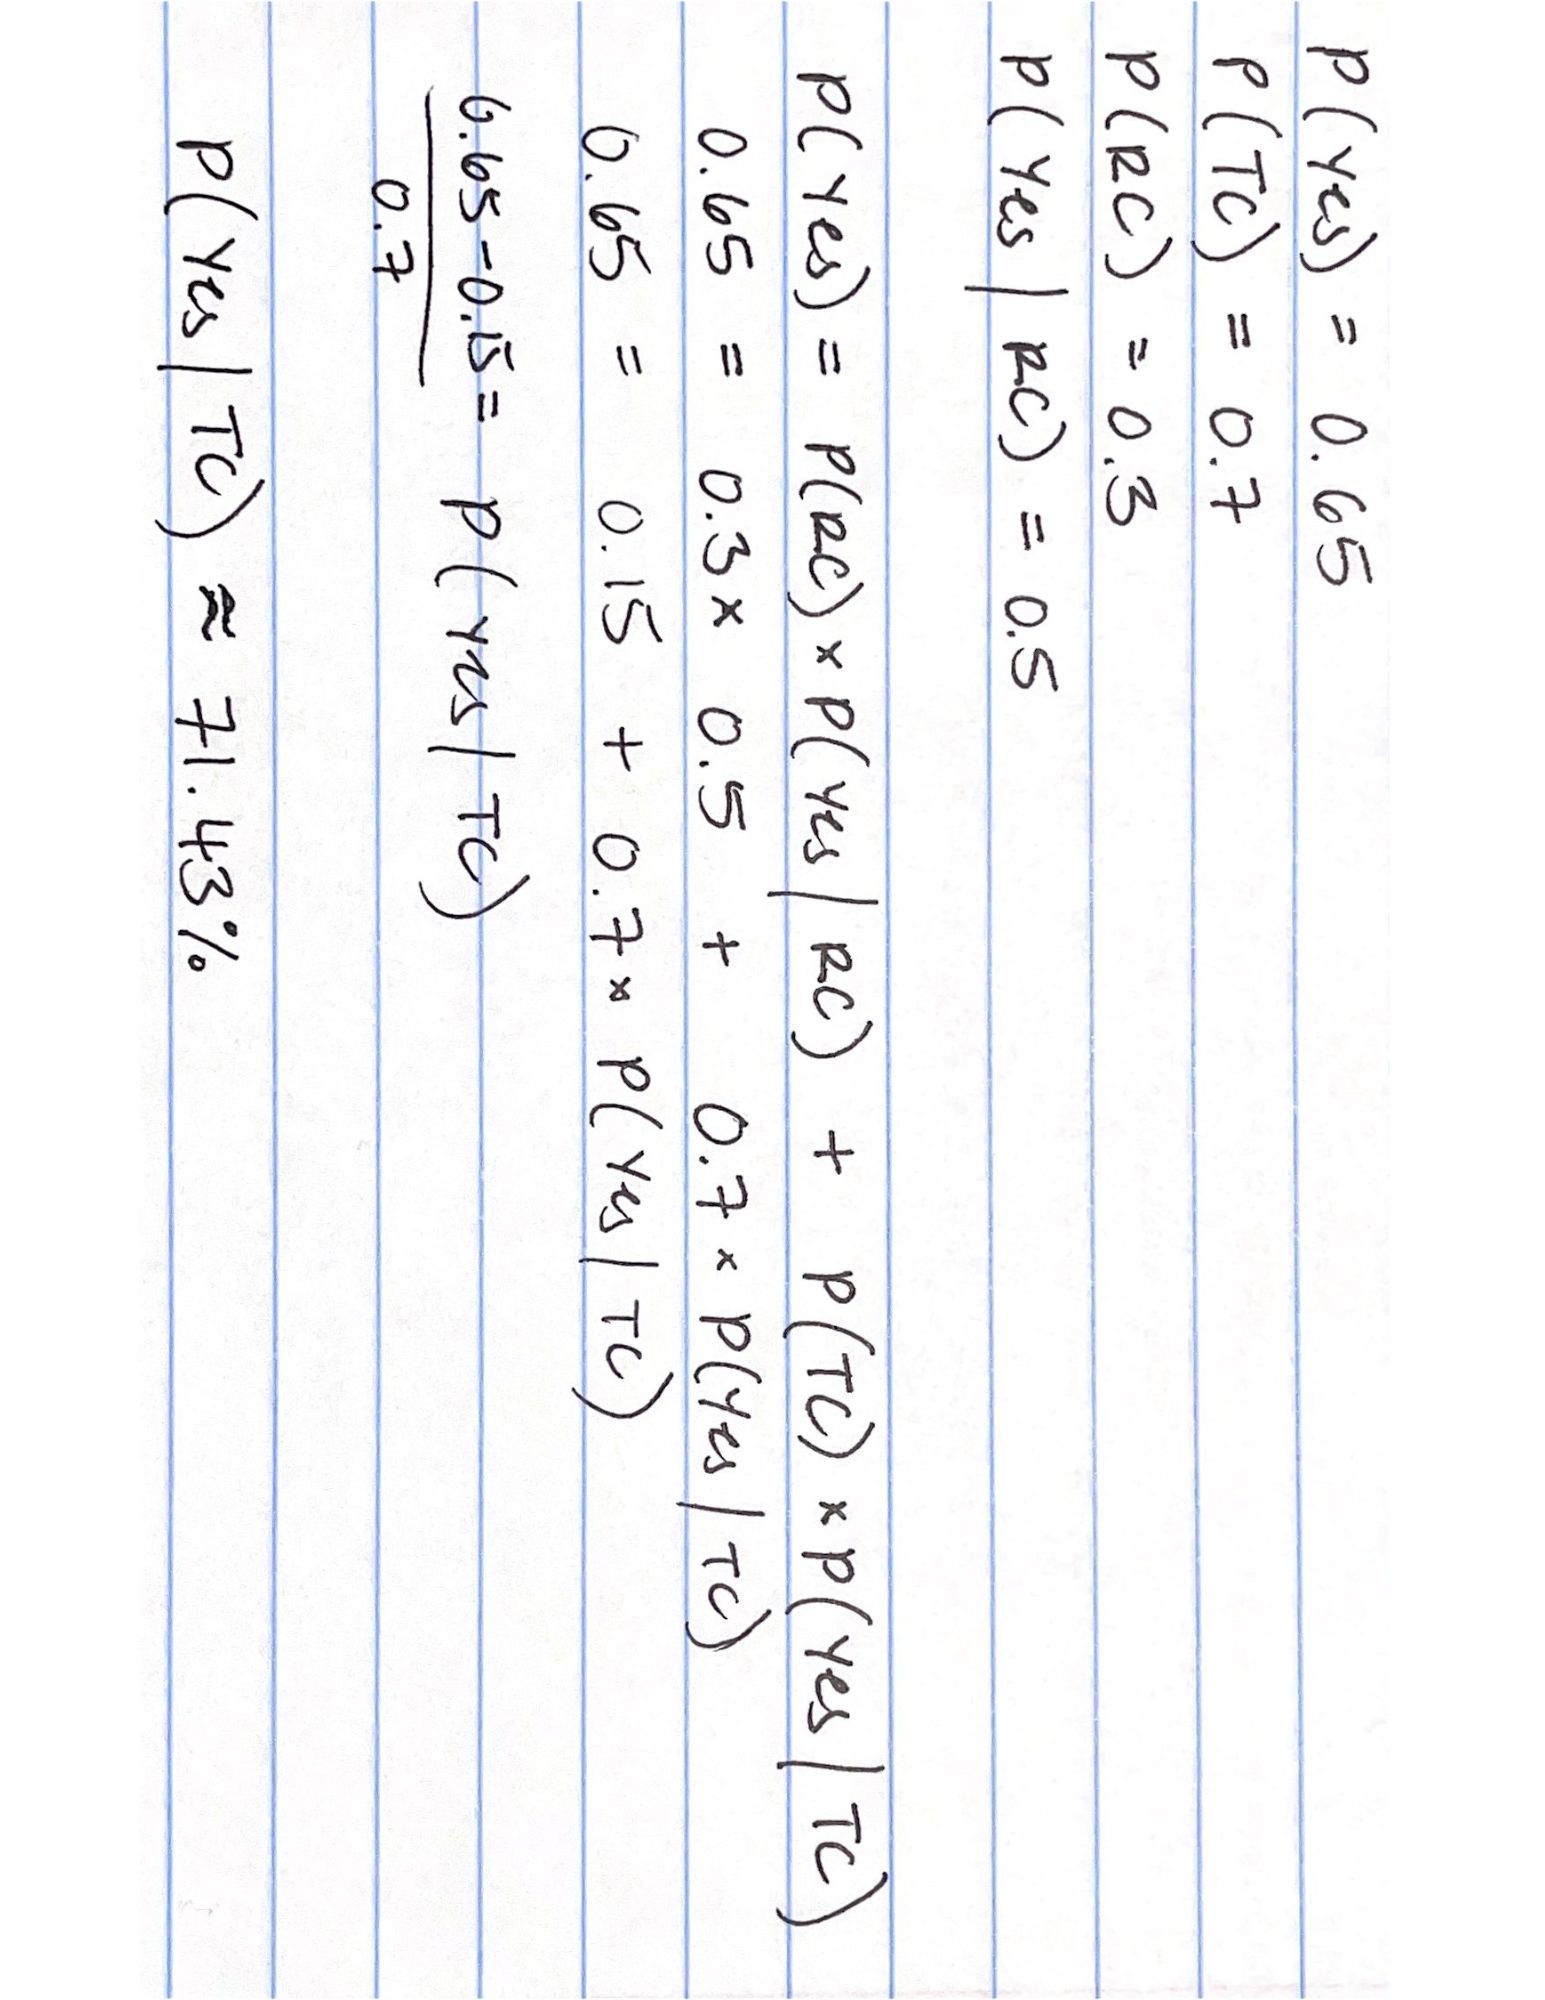 P(Yes) = 0.65
P(TC) = 0.7
P(RC) = 0.3
P(Yes | RC) = 0.5
P(Yes) = P(RC) × P(Yes | RC) + P(TC) × P(Yes | TC)
0.65 = 0.3 × 0.5 + 0.7 × P(Yes | TC)
0.65 = 0.15 + 0.7 × P(Yes | TC)
0.65 - 0.15 = P(Yes | TC)
0.7
P(Yes | TC) ≈ 71.43%